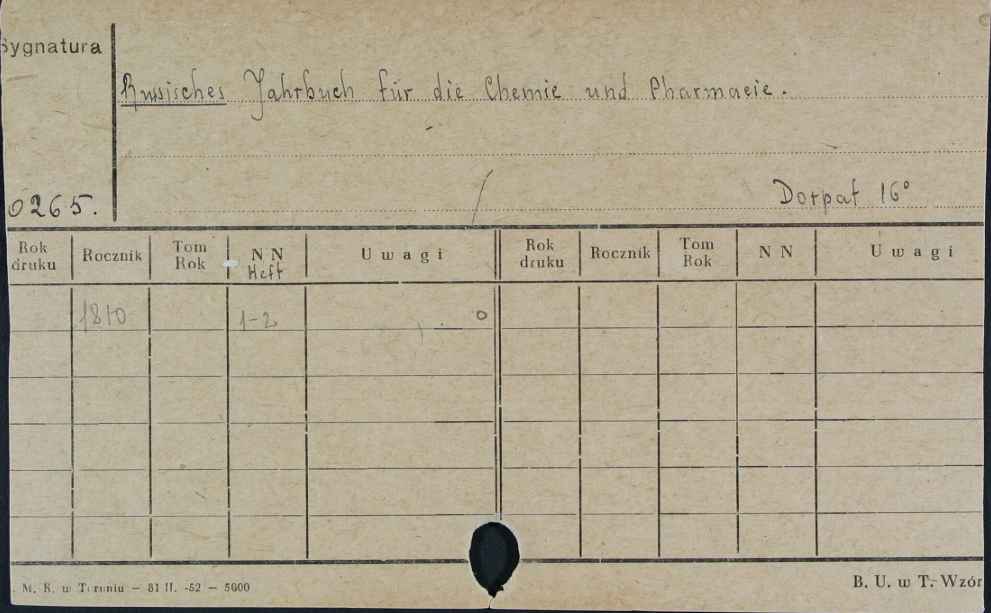 Sygnatura
Russisches Jahrbuch für die Chemie und Pharmacie.
0265.
Dorpat 16°
Rok druku Rocznik Tom Rok NN Heft Uwagi Rok druku Rocznik Tom Rok NN Uwagi
1810 1-2
M. K. w Toruniu — 81 II. -52 — 5000
B. U. w T. Wzór